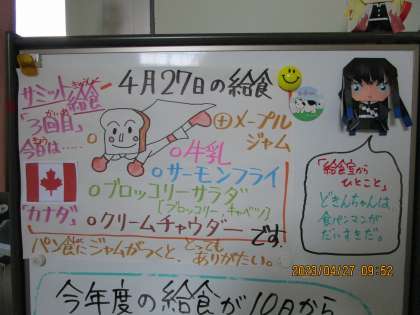 4月27日の給食
サミット給食
きゅうしょく
「3回目」
今日は……
「カナダ」
⊕メープル
ジャム
○牛乳
○サーモンフライ
○ブロッコリーサラダ
[ブロッコリー、キャベツ]
○クリームチャウダーです。
パン食にジャムがつくと、とっても
ありがたい。
「給食室から
ひとこと」
どきんちゃんは
食パンマンが
だいすきだ。
今年度の給食が10日から
2023/04/27 09:52